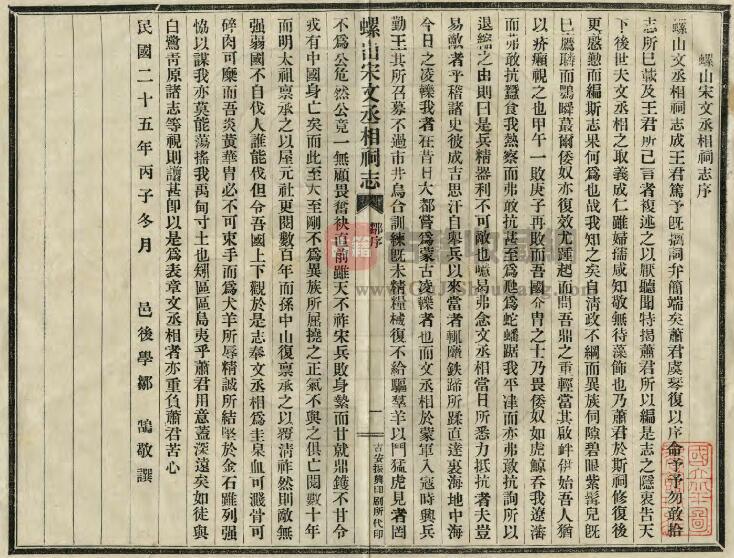 螺山宋文丞相祠志序
螺山文丞相祠志成王君篤予旣摛詞弁簡端矣蕭君虞琴復以序命予予勿敢拾
志所巳載及王君所巳言者複述之以厭聽聞特揭蕭君所以編是志之隱衷吿天
下後世夫文丞相之取義成仁雖婦孺咸知敬無待藻飾也乃蕭君於斯祠修復後
更慇懃而編斯志果何爲也哉我知之矣自淸政不綱而異族伺隙碧眼紫髯兒旣
巳鷹瞵而鶚瞬蕞爾倭奴亦復效尤踵起而問吾鼎之重輕當其啟衅伊始吾人猶
以疥癩視之也甲午一敗庚子再敗而吾國介冑之士乃畏倭奴如虎鯨吞我遼瀋
而弗敢抗蠶食我熱察而弗敢抗甚至爲虺爲蛇蟠踞我平津而亦弗敢抗詢所以
退縮之由則曰是兵精器利不可敵也噫曷弗念文丞相當日所悉力抵抗者夫豈
易敵者乎稽諸史彼成吉思汗自舉兵以來當者輒隳鐵蹄所蹂直達裏海地中海
今日之凌轢我者在昔日大都嘗爲蒙古凌轢者也而文丞相於蒙軍入寇時興兵
勤王其所召募不過市井烏合訓練旣未精糧械復不給驅羣羊以鬥猛虎見者罔
螺山宋文丞相祠志
鄒序
一
吉安振興印刷所代印
不爲公危然公竟一無顧畏奮袂直前雖天不祚宋兵敗身縶而甘就鼎鑊不甘令
戎有中國身亡矣而此至大至剛不爲異族所屈撓之正氣不與之俱亡閱數十年
而明太祖禀承之以屋元社更閱數百年而孫中山復禀承之以覆淸祚然則敵無
强弱國不自伐人誰能伐但令吾國上下觀於是志奉文丞相爲圭臬血可濺骨可
碎肉可糜而吾炎黃華冑必不可束手而爲犬羊所辱精誠所結堅於金石雖列强
恊以謀我亦莫能蕩搖我禹甸寸土也矧區區島夷乎蕭君用意蓋深遠矣如徒與
白鷺靑原諸志等視則譾甚卽以是爲表章文丞相者亦重負蕭君苦心
民國二十五年丙子冬月　邑後學鄒　鵠敬譔
古籍
古籍收藏網